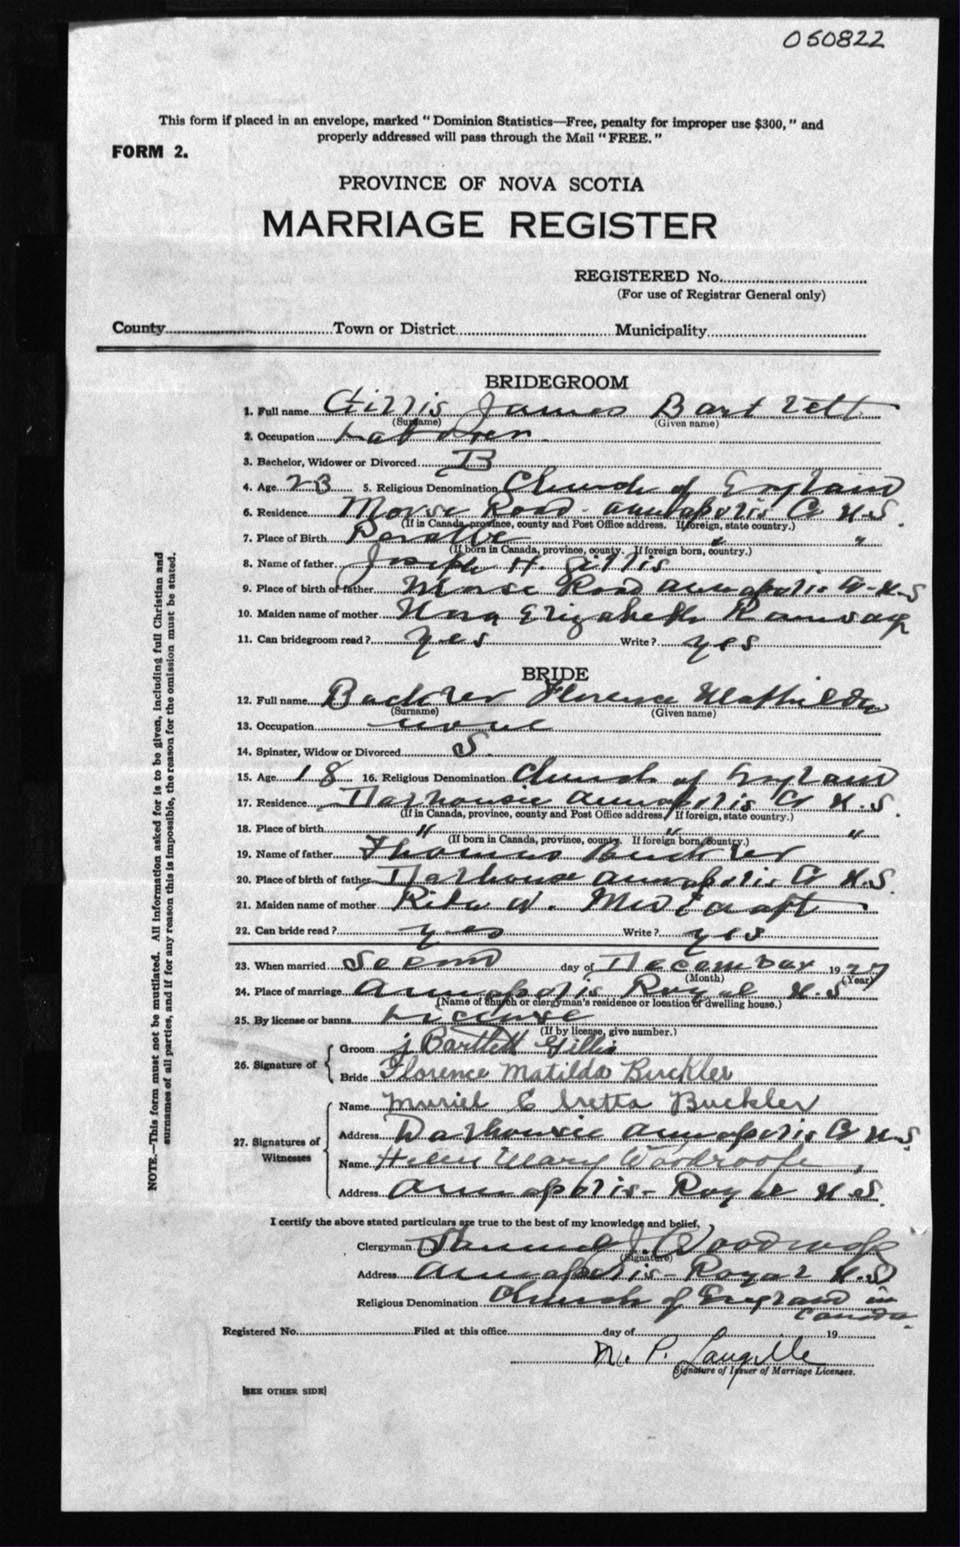 050822
This form if placed in an envelope, marked "Dominion Statistics—Free, penalty for improper use $300," and
properly addressed will pass through the Mail "FREE."
FORM 2.
PROVINCE OF NOVA SCOTIA
MARRIAGE REGISTER
REGISTERED No.
(For use of Registrar General only)
County Town or District Municipality
BRIDEGROOM
1. Full name Gillis James Bartlett
(Surname) (Given name)
2. Occupation Laborer
3. Bachelor, Widower or Divorced B
4. Age 23 5. Religious Denomination Church of England
6. Residence Morse Road - Annapolis Co N.S.
(If in Canada, province, county and Post Office address. If foreign, state country.)
7. Place of Birth Paradise " "
(If born in Canada, province, county. If foreign born, country.)
8. Name of father Joseph H. Gillis
9. Place of birth of father Morse Road Annapolis Co - N.S
10. Maiden name of mother Nora Elizabeth Ramsay
11. Can bridegroom read? yes Write? yes
BRIDE
12. Full name Buckler Florence Mathilda
(Surname) (Given name)
13. Occupation none
14. Spinster, Widow or Divorced S.
15. Age 18 16. Religious Denomination Church of England
17. Residence Dalhousie Annapolis Co N.S.
(If in Canada, province, county and Post Office address. If foreign, state country.)
18. Place of birth " " "
(If born in Canada, province, county. If foreign born, country.)
19. Name of father Thomas Buckler
20. Place of birth of father Dalhousie Annapolis Co N.S.
21. Maiden name of mother Rita W.
22. Can bride read? yes Write? yes
23. When married Second day of December 1927
(Month) (Year)
24. Place of marriage Annapolis Royal N.S
(Name of church or clergyman's residence or location of dwelling house.)
25. By license or banns License
(If by license, give number.)
26. Signature of
Groom J Bartlett Gillis
Bride Florence Matilda Buckler
27. Signatures of Witnesses
Name Muriel E Buckler
Address Dalhousie Annapolis Co N.S
Name Helen Mary Woodroofe
Address Annapolis - Royal N.S.
I certify the above stated particulars are true to the best of my knowledge and belief,
Clergyman Samuel J. Woodroofe
(Signature)
Address Annapolis - Royal N.S
Religious Denomination Church of England in
Canada.
Registered No. Filed at this office day of 19
M. P. Langille
Signature of Issuer of Marriage Licenses.
[SEE OTHER SIDE]
NOTE.—This form must not be mutilated. All information asked for is to be given, including full Christian and
surnames of all parties, and if for any reason this is impossible, the reason for the omission must be stated.